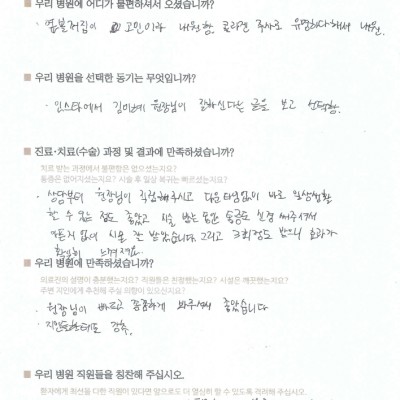 ■ 우리 병원에 어디가 불편하셔서 오셨습니까?
· 옆볼꺼짐이 고민이라 내원함. 콜라겐 주사로 유명하다해서 내원.
■ 우리 병원을 선택한 동기는 무엇입니까?
· 인스타에서 김미혜 원장님이 잘하신다는 글을 보고 선택함.
■ 진료·치료(수술) 과정 및 결과에 만족하셨습니까?
치료 받는 과정에서 불편함은 없으셨는지요?
통증은 없어지셨는지요? 시술 후 일상 복귀는 빠르셨는지요?
· 상담부터 원장님이 직접해주시고 다운타임없이 바로 일상생활
할 수 있는 점도 좋았고 시술 받는 동안 통증도 신경 써주셔서
아픈거 없이 시술 잘 받았습니다. 그리고 3회정도 받으니 효과가
확실히 느껴져요.
■ 우리 병원에 만족하셨습니까?
의료진의 설명이 충분했는지요? 직원들은 친절했는지요? 시설은 깨끗했는지요?
주변 지인에게 추천해 주실 의향이 있으신지요?
· 원장님이 빠르고 꼼꼼하게 봐주셔서 좋았습니다
· 지인들한테도 강추.
■ 우리 병원 직원들을 칭찬해 주십시오.
환자에게 최선을 다한 직원이 있다면 앞으로도 더 열심히 할 수 있도록 격려해 주십시오.